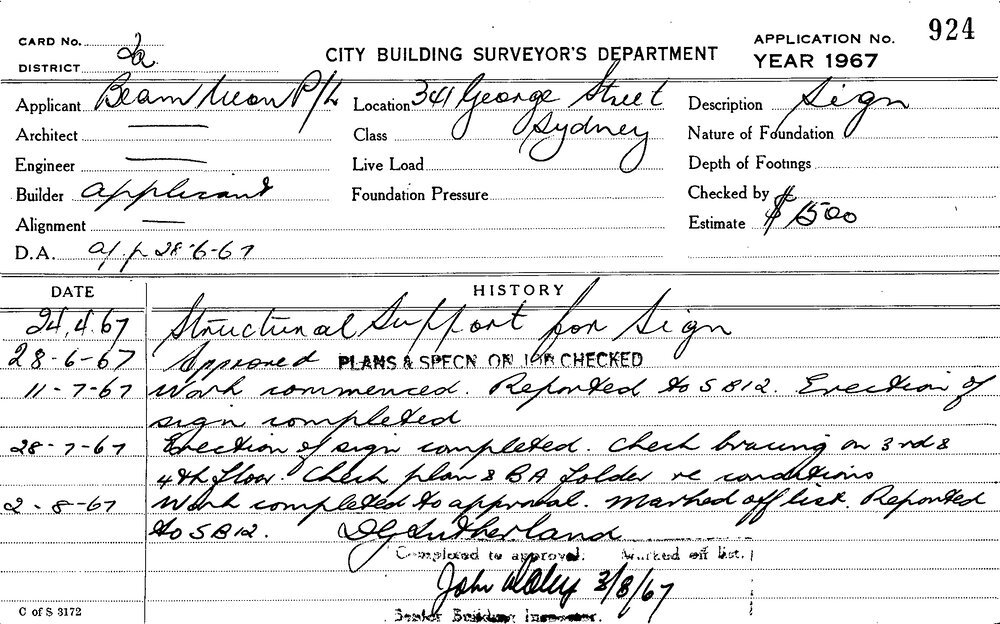 CARD No. 2a
DISTRICT
CITY BUILDING SURVEYOR'S DEPARTMENT
APPLICATION No. 924
YEAR 1967
Applicant Beam Neon P/L
Location 341 George Street
Sydney
Description Sign
Architect —
Class
Nature of Foundation
Engineer —
Live Load
Depth of Footings
Builder applicant
Foundation Pressure
Checked by
Alignment —
Estimate $1500
D.A. a/p 28-6-67
DATE
HISTORY
24.4.67 Structural Support for Sign
28-6-67 Approved PLANS & SPECN ON JOB CHECKED
11-7-67 Work commenced. Reported to SB12. Erection of
sign completed
28-7-67 Erection of sign completed. Check bracing on 3rd &
4th floor. Check plan & BA folder re conditions
2-8-67 Work completed to approval. Marked off list. Reported
to SB12. DG Sutherland
Completed to approval. Marked off list.
John 3/8/67
Senior Building Inspector.
C of S 3172